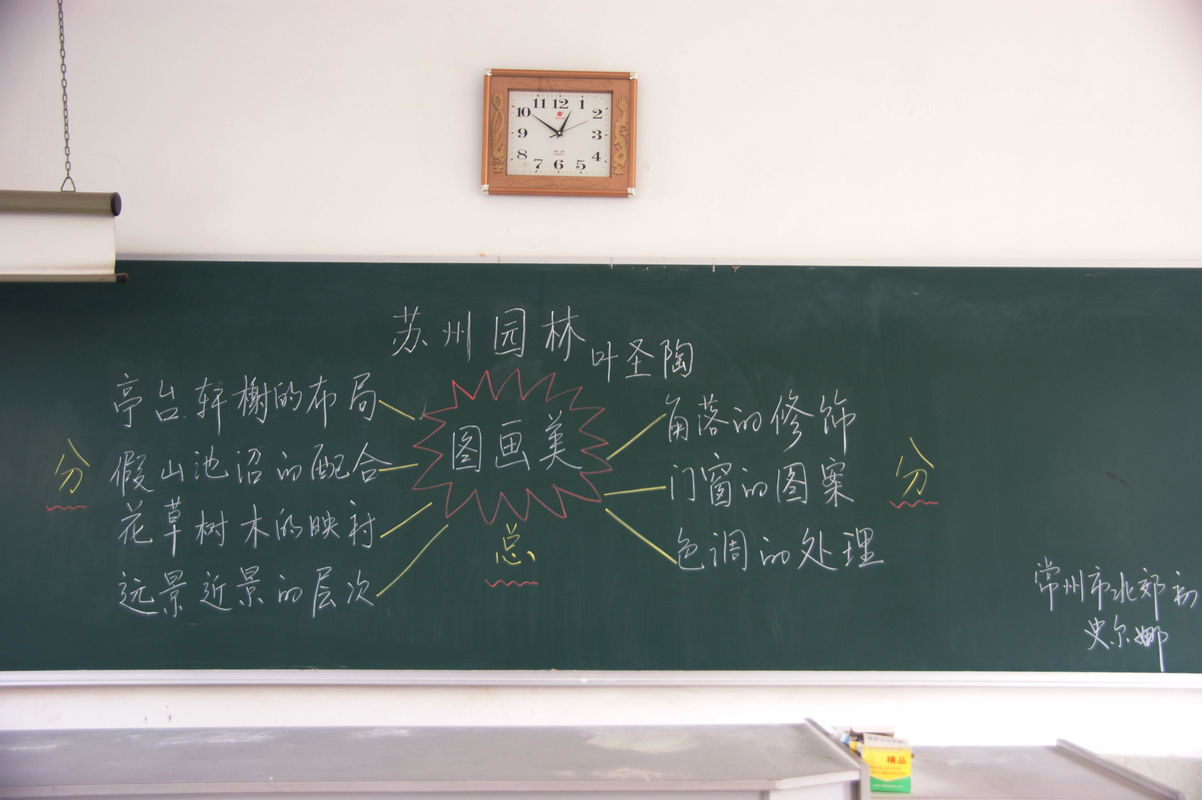 11 12 1
10 2
9 3
8 4
7 6 5
苏州园林
叶圣陶
亭台轩榭的布局
假山池沼的配合
花草树木的映衬
远景近景的层次
分
图画美
总
角落的修饰
门窗的图案
色调的处理
分
常州市北郊初
史尔娜
精品